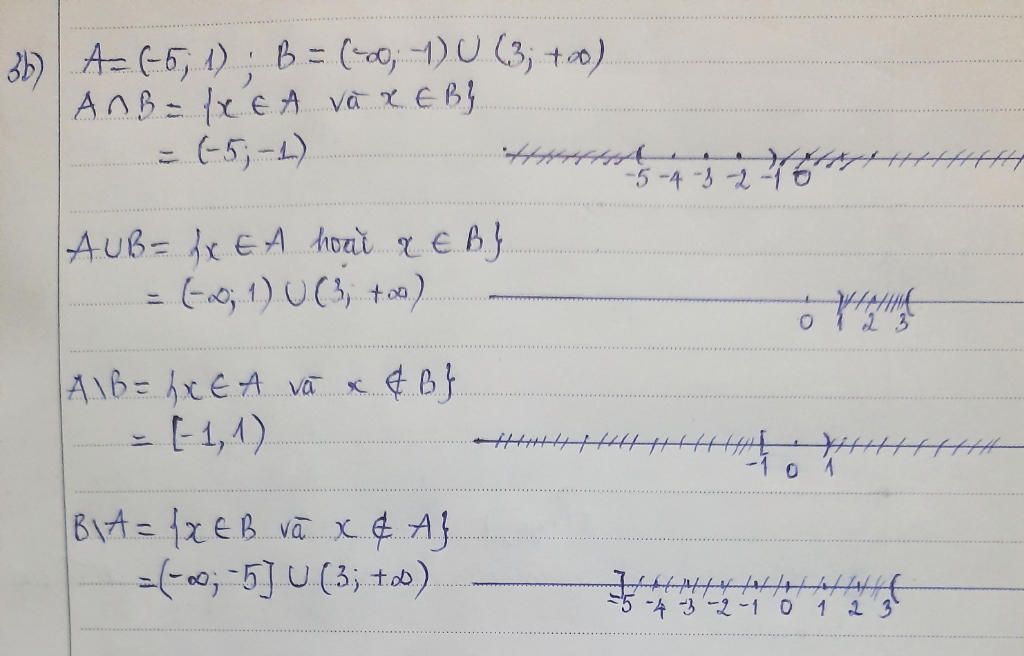 3b) A = (-5; 1) ; B = (-∞; -1) ∪ (3; +∞)
A ∩ B = {x ∈ A và x ∈ B}
= (-5; -1)
-5 -4 -3 -2 -1 0
A ∪ B = {x ∈ A hoặc x ∈ B}
= (-∞; 1) ∪ (3; +∞)
0 1 2 3
A \ B = {x ∈ A và x ∉ B}
= [-1, 1)
-1 0 1
B \ A = {x ∈ B và x ∉ A}
= (-∞; -5] ∪ (3; +∞)
-5 -4 -3 -2 -1 0 1 2 3